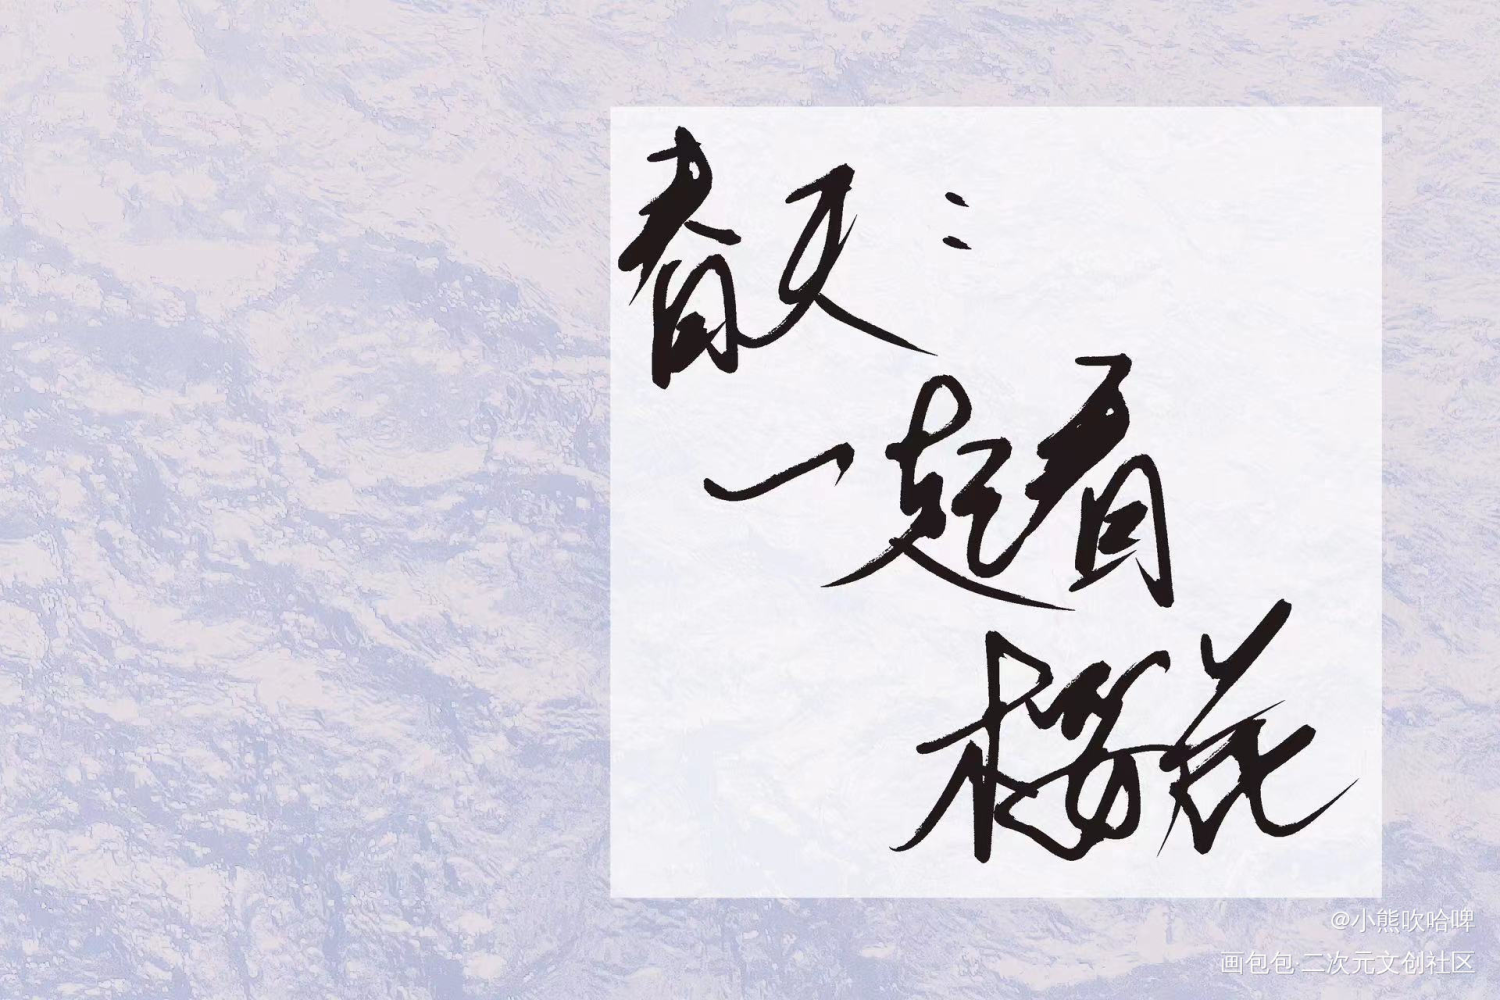 春天:
一起看
樱花
@小熊吹哈啤
画包包·二次元文创社区